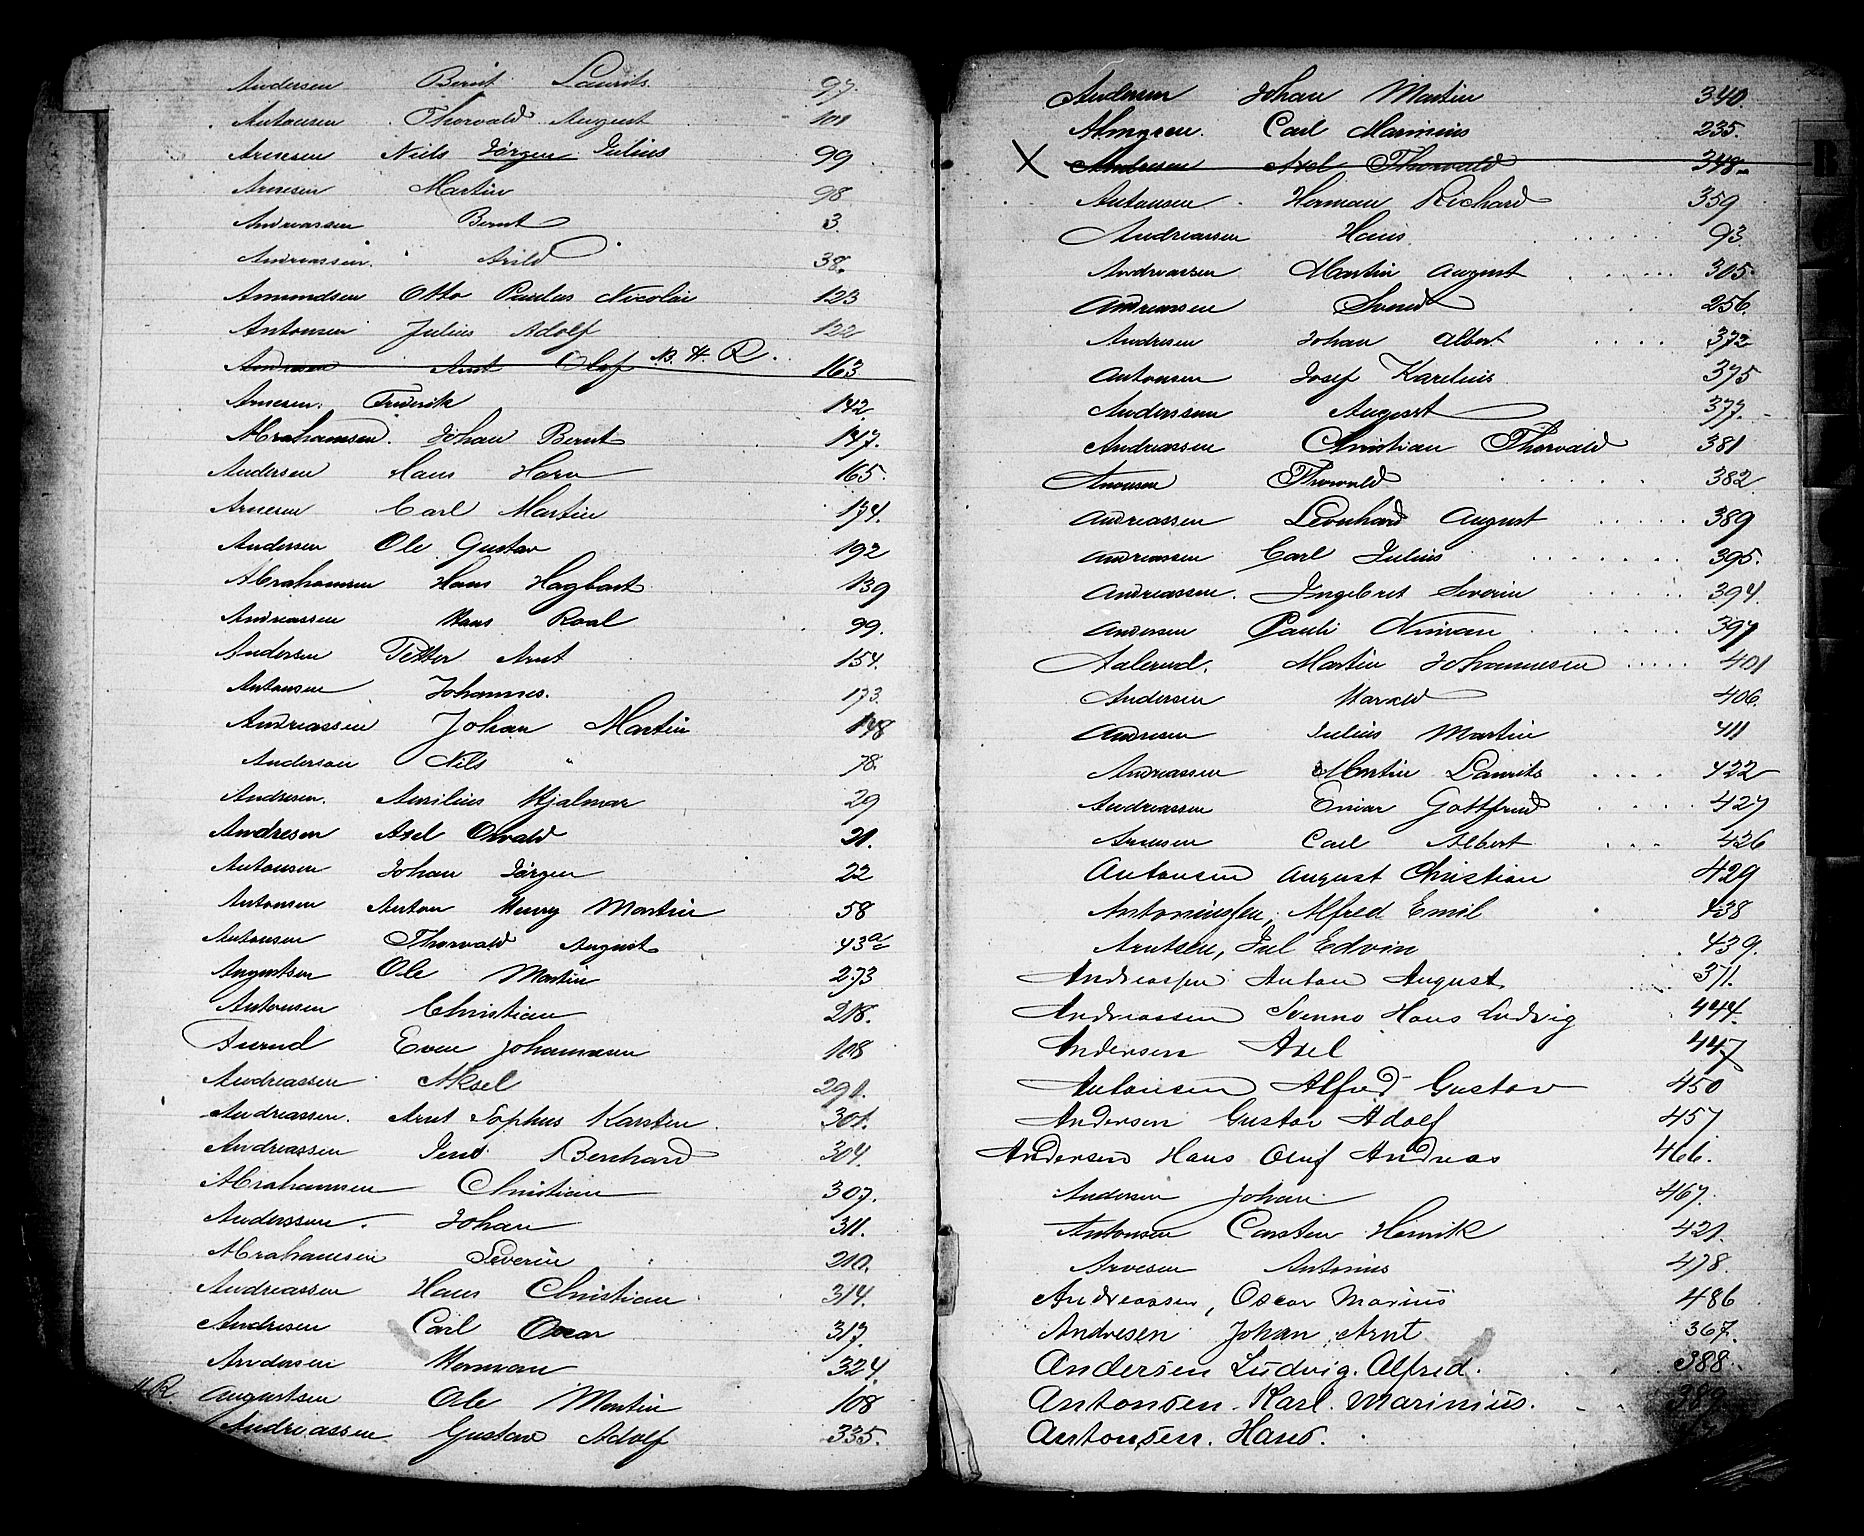 Andersen Bernt Laurits 97.
Antonsen Thorvald August 101
Arnesen Niels Jørgen Julius 99
Arnesen Martin 98
Andreassen Bernt 3.
Andreassen. Arild 38.
Amundsen Otto Paulus Nicolai 123
Antonsen Julius Adolf 122
Andresen Arnt Olaf N. H. R. 163
Arnesen. Fredrik 142.
Abrahamsen. Johan Bernt 147.
Andersen Hans Horn 165.
Arnesen Carl Martin 174.
Andersen Ole Gustav 192
Abrahamsen Hans Hagbart 139
Andreassen Hans Roal 99.
Andersen Petter Arnt 154.
Antonsen Johannes. 173
Andreassen Johan Martin 148
Anderson Nils 78.
Andresen. Amilius Hjalmar 29
Andresen Axel Osvald 21.
Antonsen Johan Jörgen 22
Antonsen Anton Henry Martin 58
Antonsen Thorvald August 43a
Augustsen Ole Martin 273
Antonsen Christian 218.
Aurud Even Johannesen 108
Andreassen Aksel 291.
Andreassen. Arnt Sophus Karsten. 301.
Andreassen Jens Bernhard 304.
Abrahamsen Christian 307.
Anderssen. Johan 311.
Abrahamsen Severin 210.
Andreassen Hans Christian 314.
Andresen Carl Oscar 317.
Andersen Herman 324.
H.R. Augustsen Ole Martin 108
Andreassen Gustav Adolf 335.
Andersen Johan Martin 340.
Almgren. Carl Marinius 235.
X Andresen Axel Thorvald 348.
Antonsen Herman Richard 359
Andreassen Hans 93
Andreassen Martin August 305.
Andreassen Svend 256.
Andresen Johan Albert 372
Antonsen Josef Karelius 375
Anderssen August 377.
Andreassen Christian Thorvald 381
Aronsen Thorvald 382
Andreassen Leonhard August 389
Andreassen Carl Julius 395.
Andreassen. Ingebret Severin 394.
Andersen Pauli Niman 397
Aalerud. Martin Johannesen 401
Andersen Harald 406.
Andresen Julius Martin 411
Andreassen Martin Laurits 422
Andreassen Einar Gottfred 427
Arnesen Carl Albert 426
Antonsen August Christian 429
Antoniussen, Alfred Emil 438
Arntsen, Jul Edvin 439.
Andreassen Anton August 371.
Andreassen Svenno Hans Ludvig 444.
Andersen Axel 447
Antonsen Alfred Gustav 450
Andersen Gustav Adolf 457
Andersen Hans Oluf Andreas 466.
Andersen Johan 467.
Antonsen Carsten Henrik 421.
Arvesen Antonius 478.
Andreassen, Oscar Marius 486
Andresen Johan Arnt 367.
Andersen Ludvig. Alfred. 388.
Antonsen. Karl. Marinius. 389
Antonsen. Hans.
B